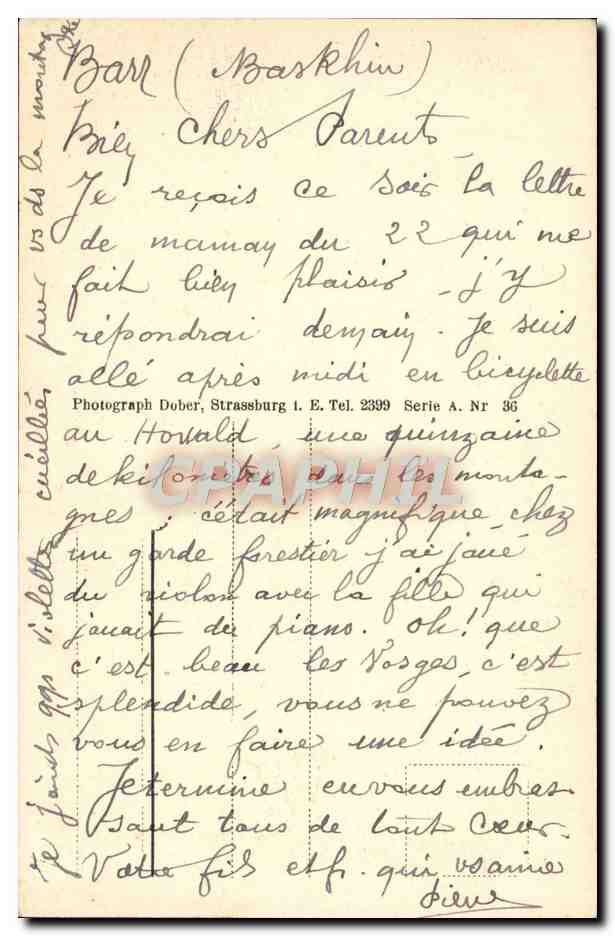 Barr (Baskhin)
Bien chers Parents
Je reçois ce soir la lettre
de maman du 22 qui me
fait bien plaisir - j'y
répondrai demain. Je suis
allé après midi en bicyclette
Photograph Dober, Strassburg i. E. Tel. 2399 Serie A. Nr 36
au Howald, une quinzaine
de kilomètres dans les monta-
gnes ; c'était magnifique, chez
un garde forestier j'ai joué
du violon avec la fille qui
jouait du piano. Oh! que
c'est beau les Vosges, c'est
splendide, vous ne pouvez
vous en faire une idée.
Je termine en vous embras-
sant tous de tout Cœur.
Votre fils et f. qui vs aime
Pierre
Je joids qqs violettes cueillies pour vs ds la montag
CPAPHIL